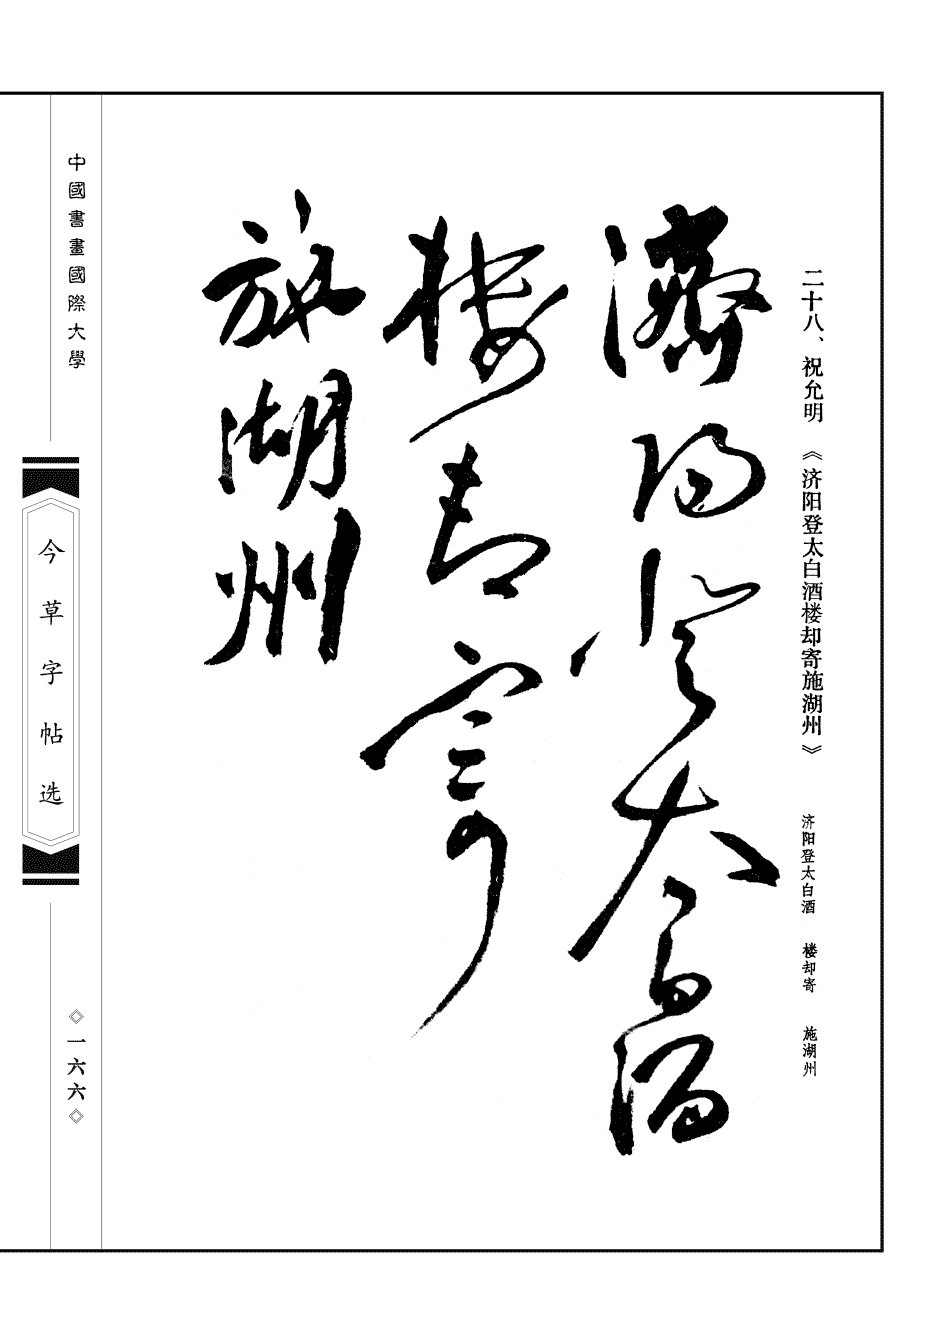 二十八、祝允明《济阳登太白酒楼却寄施湖州》
济阳登太白酒　楼却寄　施湖州
濟陽登太白酒
樓却寄
施湖州
中國書畫國際大學
今草字帖选
◇一六六◇